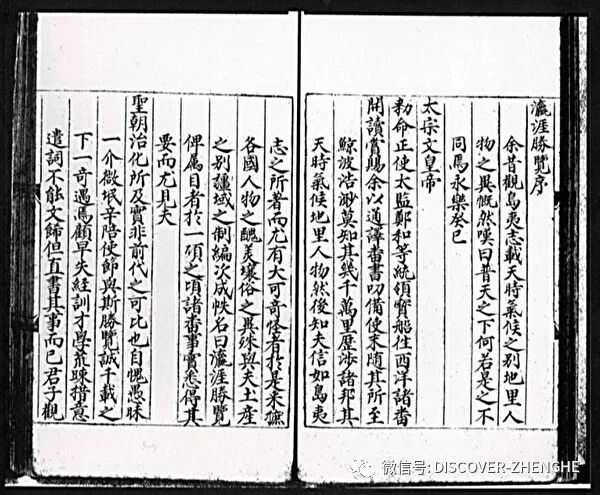 瀛涯勝覽序
余昔觀島夷志載天時氣候之別地里人
物之異慨然嘆曰普天之下何若是之不
同焉永樂癸巳
太宗文皇帝
勑命正使太監鄭和等統領寳船往西洋諸番
開讀賞賜余以通譯番書叨備使末随其所至
鯨波浩渺莫知其幾千萬里歷涉諸邦其
天時氣候地里人物然後知夫信如島夷
志之所著而尤有大可奇怪者於是采摭
各國人物之醜美壤俗之異殊與夫土産
之別疆域之制編次成帙名曰瀛涯勝覽
俾属目者於一頋之頃諸番事實悉得其
要而尤見夫
聖朝治化所及實非前代之可比也自愧愚昧
一介微氓辛陪使節與斯勝覽誠千載之
下一奇遇焉顧早失經訓才學荒踈措意
遣詞不能文飾但直書其事而已君子觀
微信号: DISCOVER-ZHENGHE